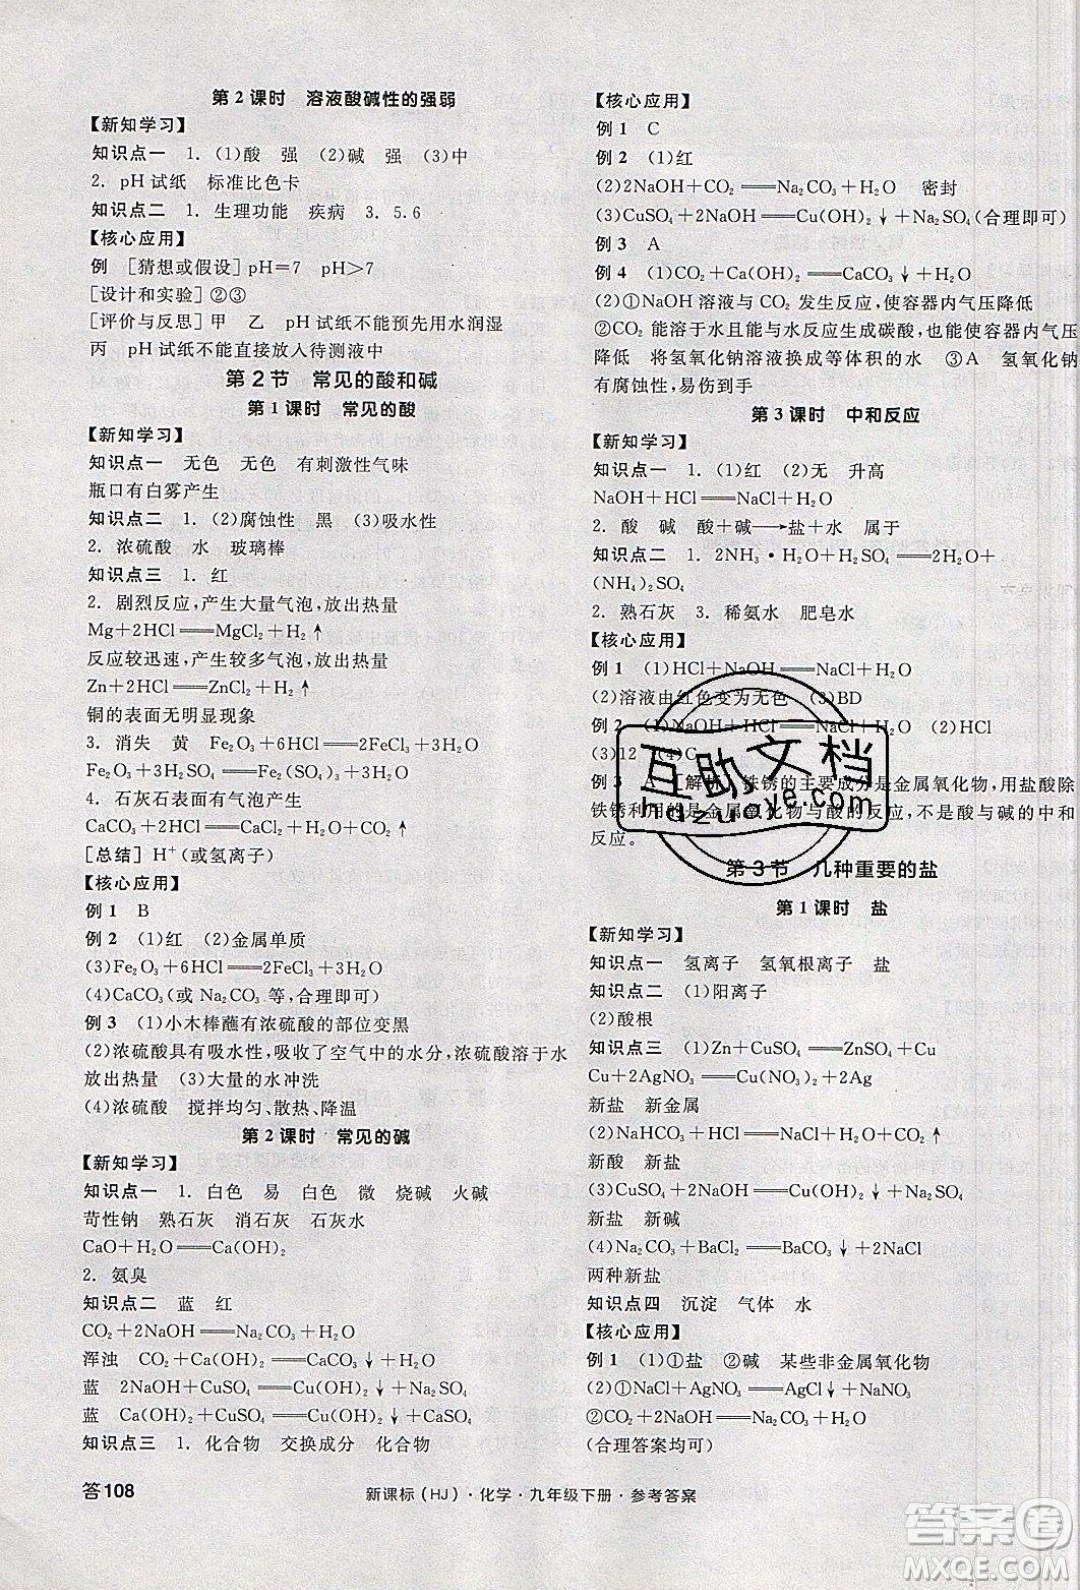 第2课时　溶液酸碱性的强弱
【新知学习】
知识点一　1. (1)酸　强　(2)碱　强　(3)中
2. pH试纸　标准比色卡
知识点二　1. 生理功能　疾病　3. 5.6
【核心应用】
例　[猜想或假设] pH=7　pH>7
[设计和实验] ②③
[评价与反思] 甲　乙　pH试纸不能预先用水润湿
丙　pH试纸不能直接放入待测液中
第2节　常见的酸和碱
第1课时　常见的酸
【新知学习】
知识点一　无色　无色　有刺激性气味
瓶口有白雾产生
知识点二　1. (2)腐蚀性　黑　(3)吸水性
2. 浓硫酸　水　玻璃棒
知识点三　1. 红
2. 剧烈反应,产生大量气泡,放出热量
Mg+2HCl══MgCl₂+H₂↑
反应较迅速,产生较多气泡,放出热量
Zn+2HCl══ZnCl₂+H₂↑
铜的表面无明显现象
3. 消失　黄　Fe₂O₃+6HCl══2FeCl₃+3H₂O
Fe₂O₃+3H₂SO₄══Fe₂(SO₄)₃+3H₂O
4. 石灰石表面有气泡产生
CaCO₃+2HCl══CaCl₂+H₂O+CO₂↑
[总结] H⁺(或氢离子)
【核心应用】
例1　B
例2　(1)红　(2)金属单质
(3)Fe₂O₃+6HCl══2FeCl₃+3H₂O
(4)CaCO₃(或Na₂CO₃等,合理即可)
例3　(1)小木棒蘸有浓硫酸的部位变黑
(2)浓硫酸具有吸水性,吸收了空气中的水分,浓硫酸溶于水
放出热量　(3)大量的水冲洗
(4)浓硫酸　搅拌均匀、散热、降温
第2课时　常见的碱
【新知学习】
知识点一　1. 白色　易　白色　微　烧碱　火碱
苛性钠　熟石灰　消石灰　石灰水
CaO+H₂O══Ca(OH)₂
2. 氨臭
知识点二　蓝　红
CO₂+2NaOH══Na₂CO₃+H₂O
浑浊　CO₂+Ca(OH)₂══CaCO₃↓+H₂O
蓝　2NaOH+CuSO₄══Cu(OH)₂↓+Na₂SO₄
蓝　Ca(OH)₂+CuSO₄══Cu(OH)₂↓+CaSO₄
知识点三　1. 化合物　交换成分　化合物
【核心应用】
例1　C
例2　(1)红
(2)2NaOH+CO₂══Na₂CO₃+H₂O　密封
(3)CuSO₄+2NaOH══Cu(OH)₂↓+Na₂SO₄(合理即可)
例3　A
例4　(1)CO₂+Ca(OH)₂══CaCO₃↓+H₂O
(2)①NaOH溶液与CO₂发生反应,使容器内气压降低
②CO₂能溶于水且能与水反应生成碳酸,也能使容器内气压
降低　将氢氧化钠溶液换成等体积的水　③A　氢氧化钠
有腐蚀性,易伤到手
第3课时　中和反应
【新知学习】
知识点一　1. (1)红　(2)无　升高
NaOH+HCl══NaCl+H₂O
2. 酸　碱　酸+碱⟶盐+水　属于
知识点二　1. 2NH₃·H₂O+H₂SO₄══2H₂O+
(NH₄)₂SO₄
2. 熟石灰　3. 稀氨水　肥皂水
【核心应用】
例1　(1)HCl+NaOH══NaCl+H₂O
(2)溶液由红色变为无色　(3)BD
例2　(1)NaOH+HCl══NaCl+H₂O　(2)HCl
(3)12　(4)C
例3　A　[解析] 铁锈的主要成分是金属氧化物,用盐酸除
铁锈利用的是金属氧化物与酸的反应,不是酸与碱的中和
反应。
第3节　几种重要的盐
第1课时　盐
【新知学习】
知识点一　氢离子　氢氧根离子　盐
知识点二　(1)阳离子
(2)酸根
知识点三　(1)Zn+CuSO₄══ZnSO₄+Cu
Cu+2AgNO₃══Cu(NO₃)₂+2Ag
新盐　新金属
(2)Na₂CO₃+2HCl══2NaCl+H₂O+CO₂↑
新酸　新盐
(3)CuSO₄+2NaOH══Cu(OH)₂↓+Na₂SO₄
新盐　新碱
(4)Na₂CO₃+BaCl₂══BaCO₃↓+2NaCl
两种新盐
知识点四　沉淀　气体　水
【核心应用】
例1　(1)①盐　②碱　某些非金属氧化物
(2)①NaCl+AgNO₃══AgCl↓+NaNO₃
②CO₂+2NaOH══Na₂CO₃+H₂O
(合理答案均可)
答108
新课标(HJ)·化学·九年级下册·参考答案
互助文档
huzuoye.com
答案圈
MXQE.COM